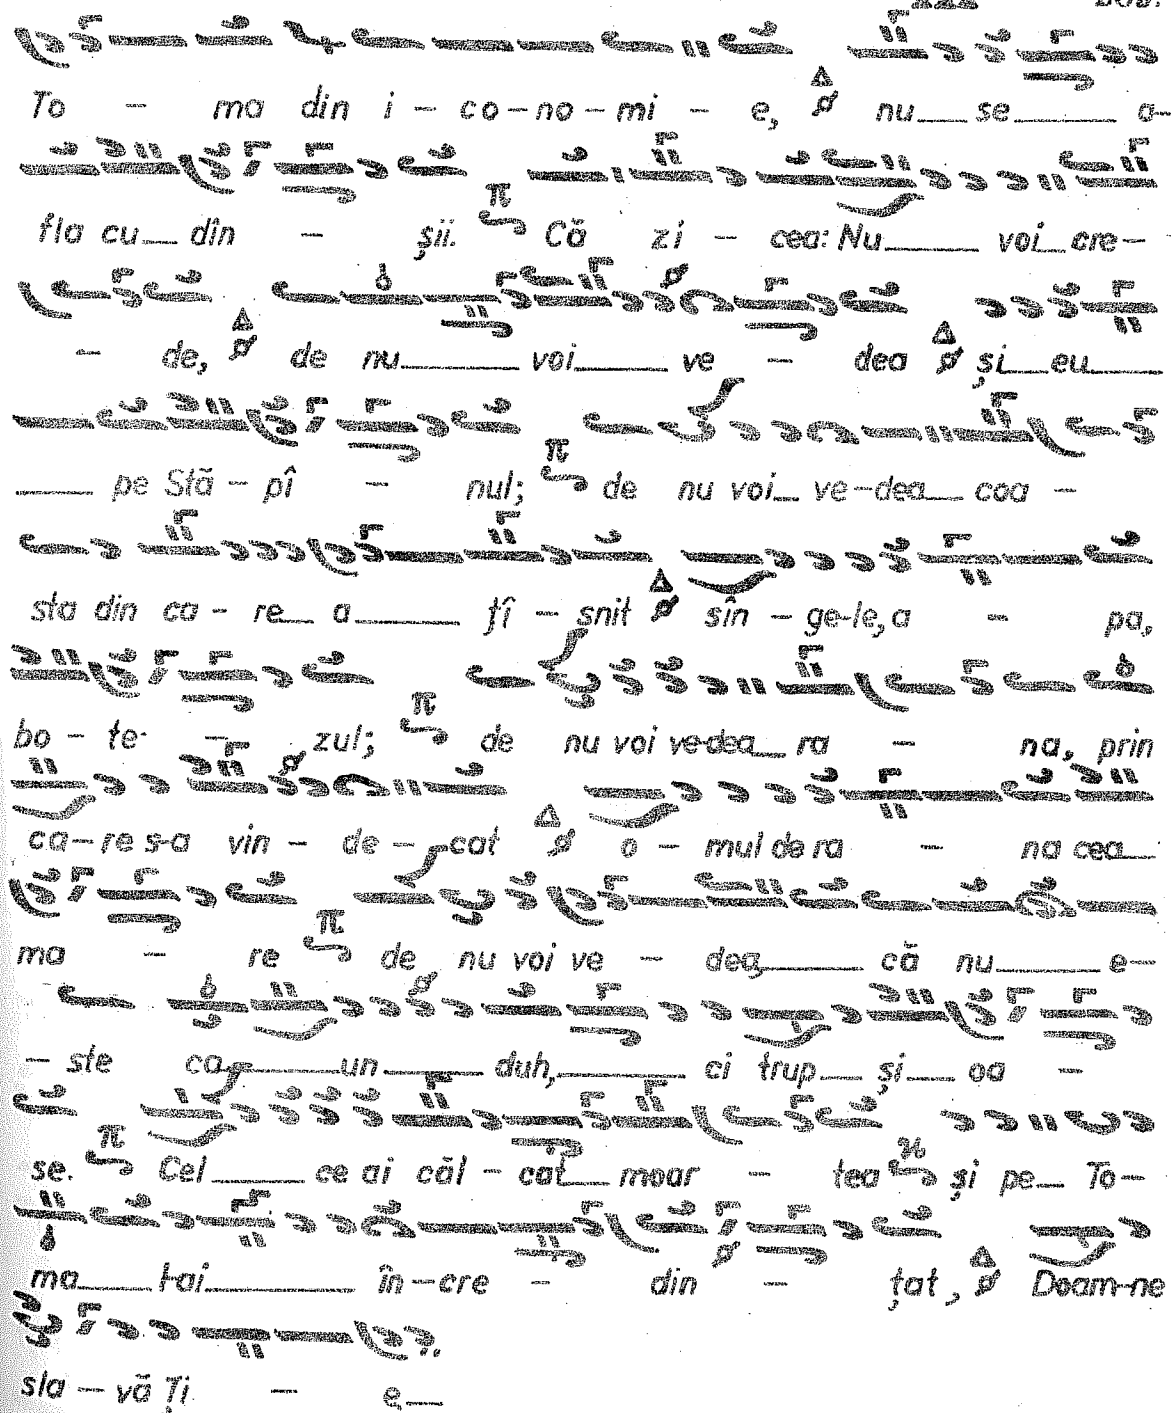 To – ma din i – co – no – mi – e, nu___ se______ a–
fla cu__ dîn – șii. Că zi – cea: Nu______ voi__ cre–
– de, de nu______ voi______ ve – dea și__ eu____
____ pe Stă – pî – nul; de nu voi__ ve – dea__ coa –
sta din ca – re__ a______ țî – snit sîn – ge-le, a – pa,
bo – te – – zul; de nu voi ve-dea__ ra – na, prin
ca – re s-a vin – de – cat o – mul de ra – na cea__
ma – re de nu voi ve – dea,______ că nu______ e–
– ste ca______ un______ duh,______ ci trup__ și__ oa –
se. Cel______ ce ai căl – cat__ moar – tea și pe__ To –
ma____ l-ai______ în – cre – din – țat, Doam-ne
sla – vă Ți – e__